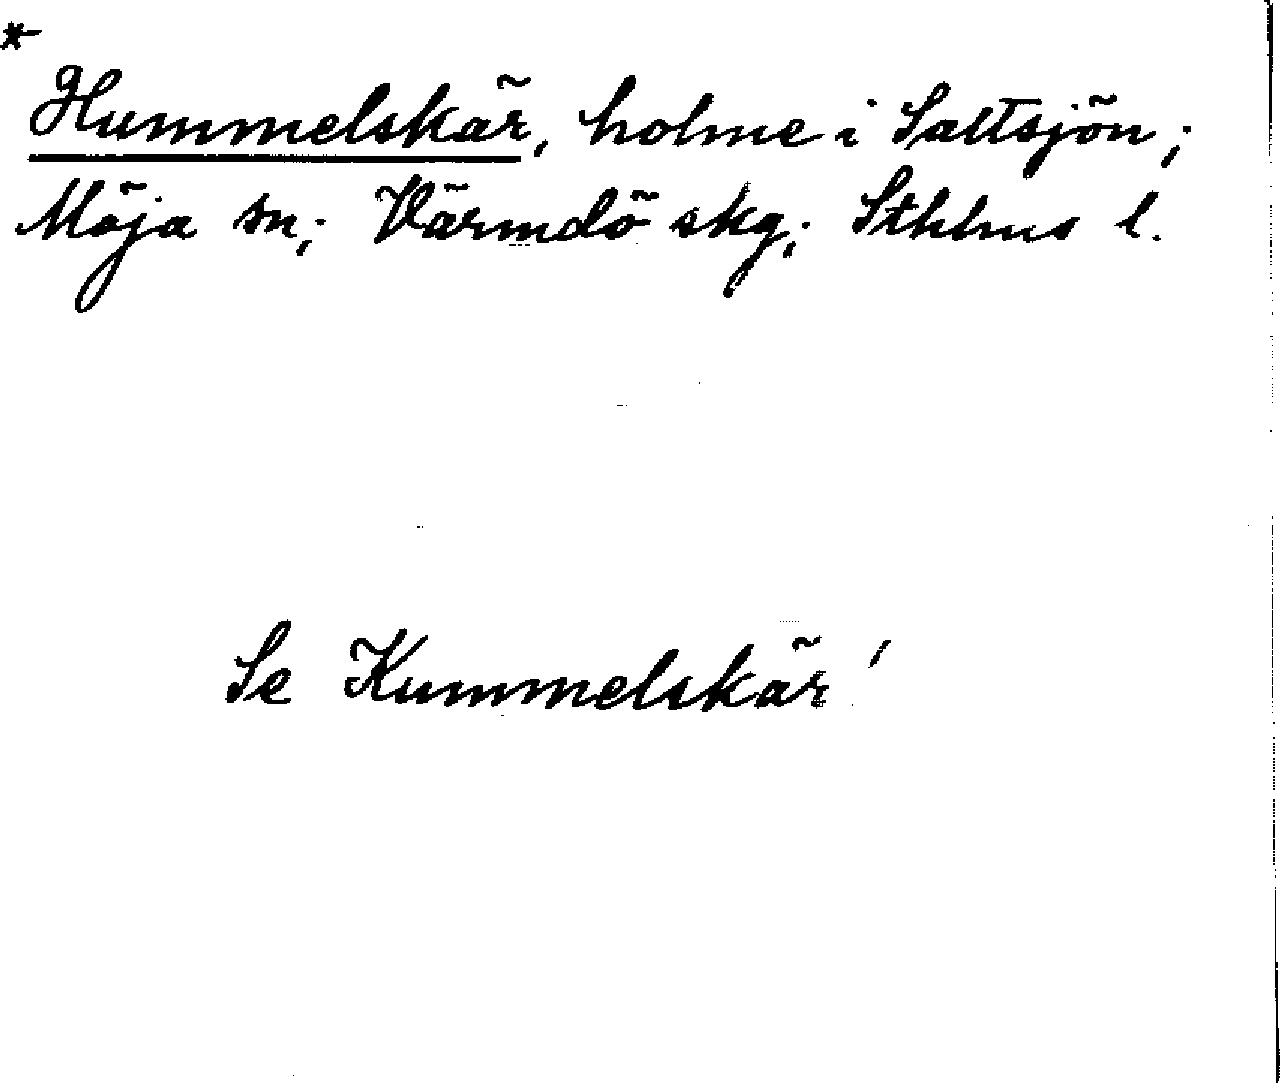 *
Hummelskär, holme i Saltsjön;
Möja sn; Värmdö skg; Sthlms l.
Se Kummelskär!